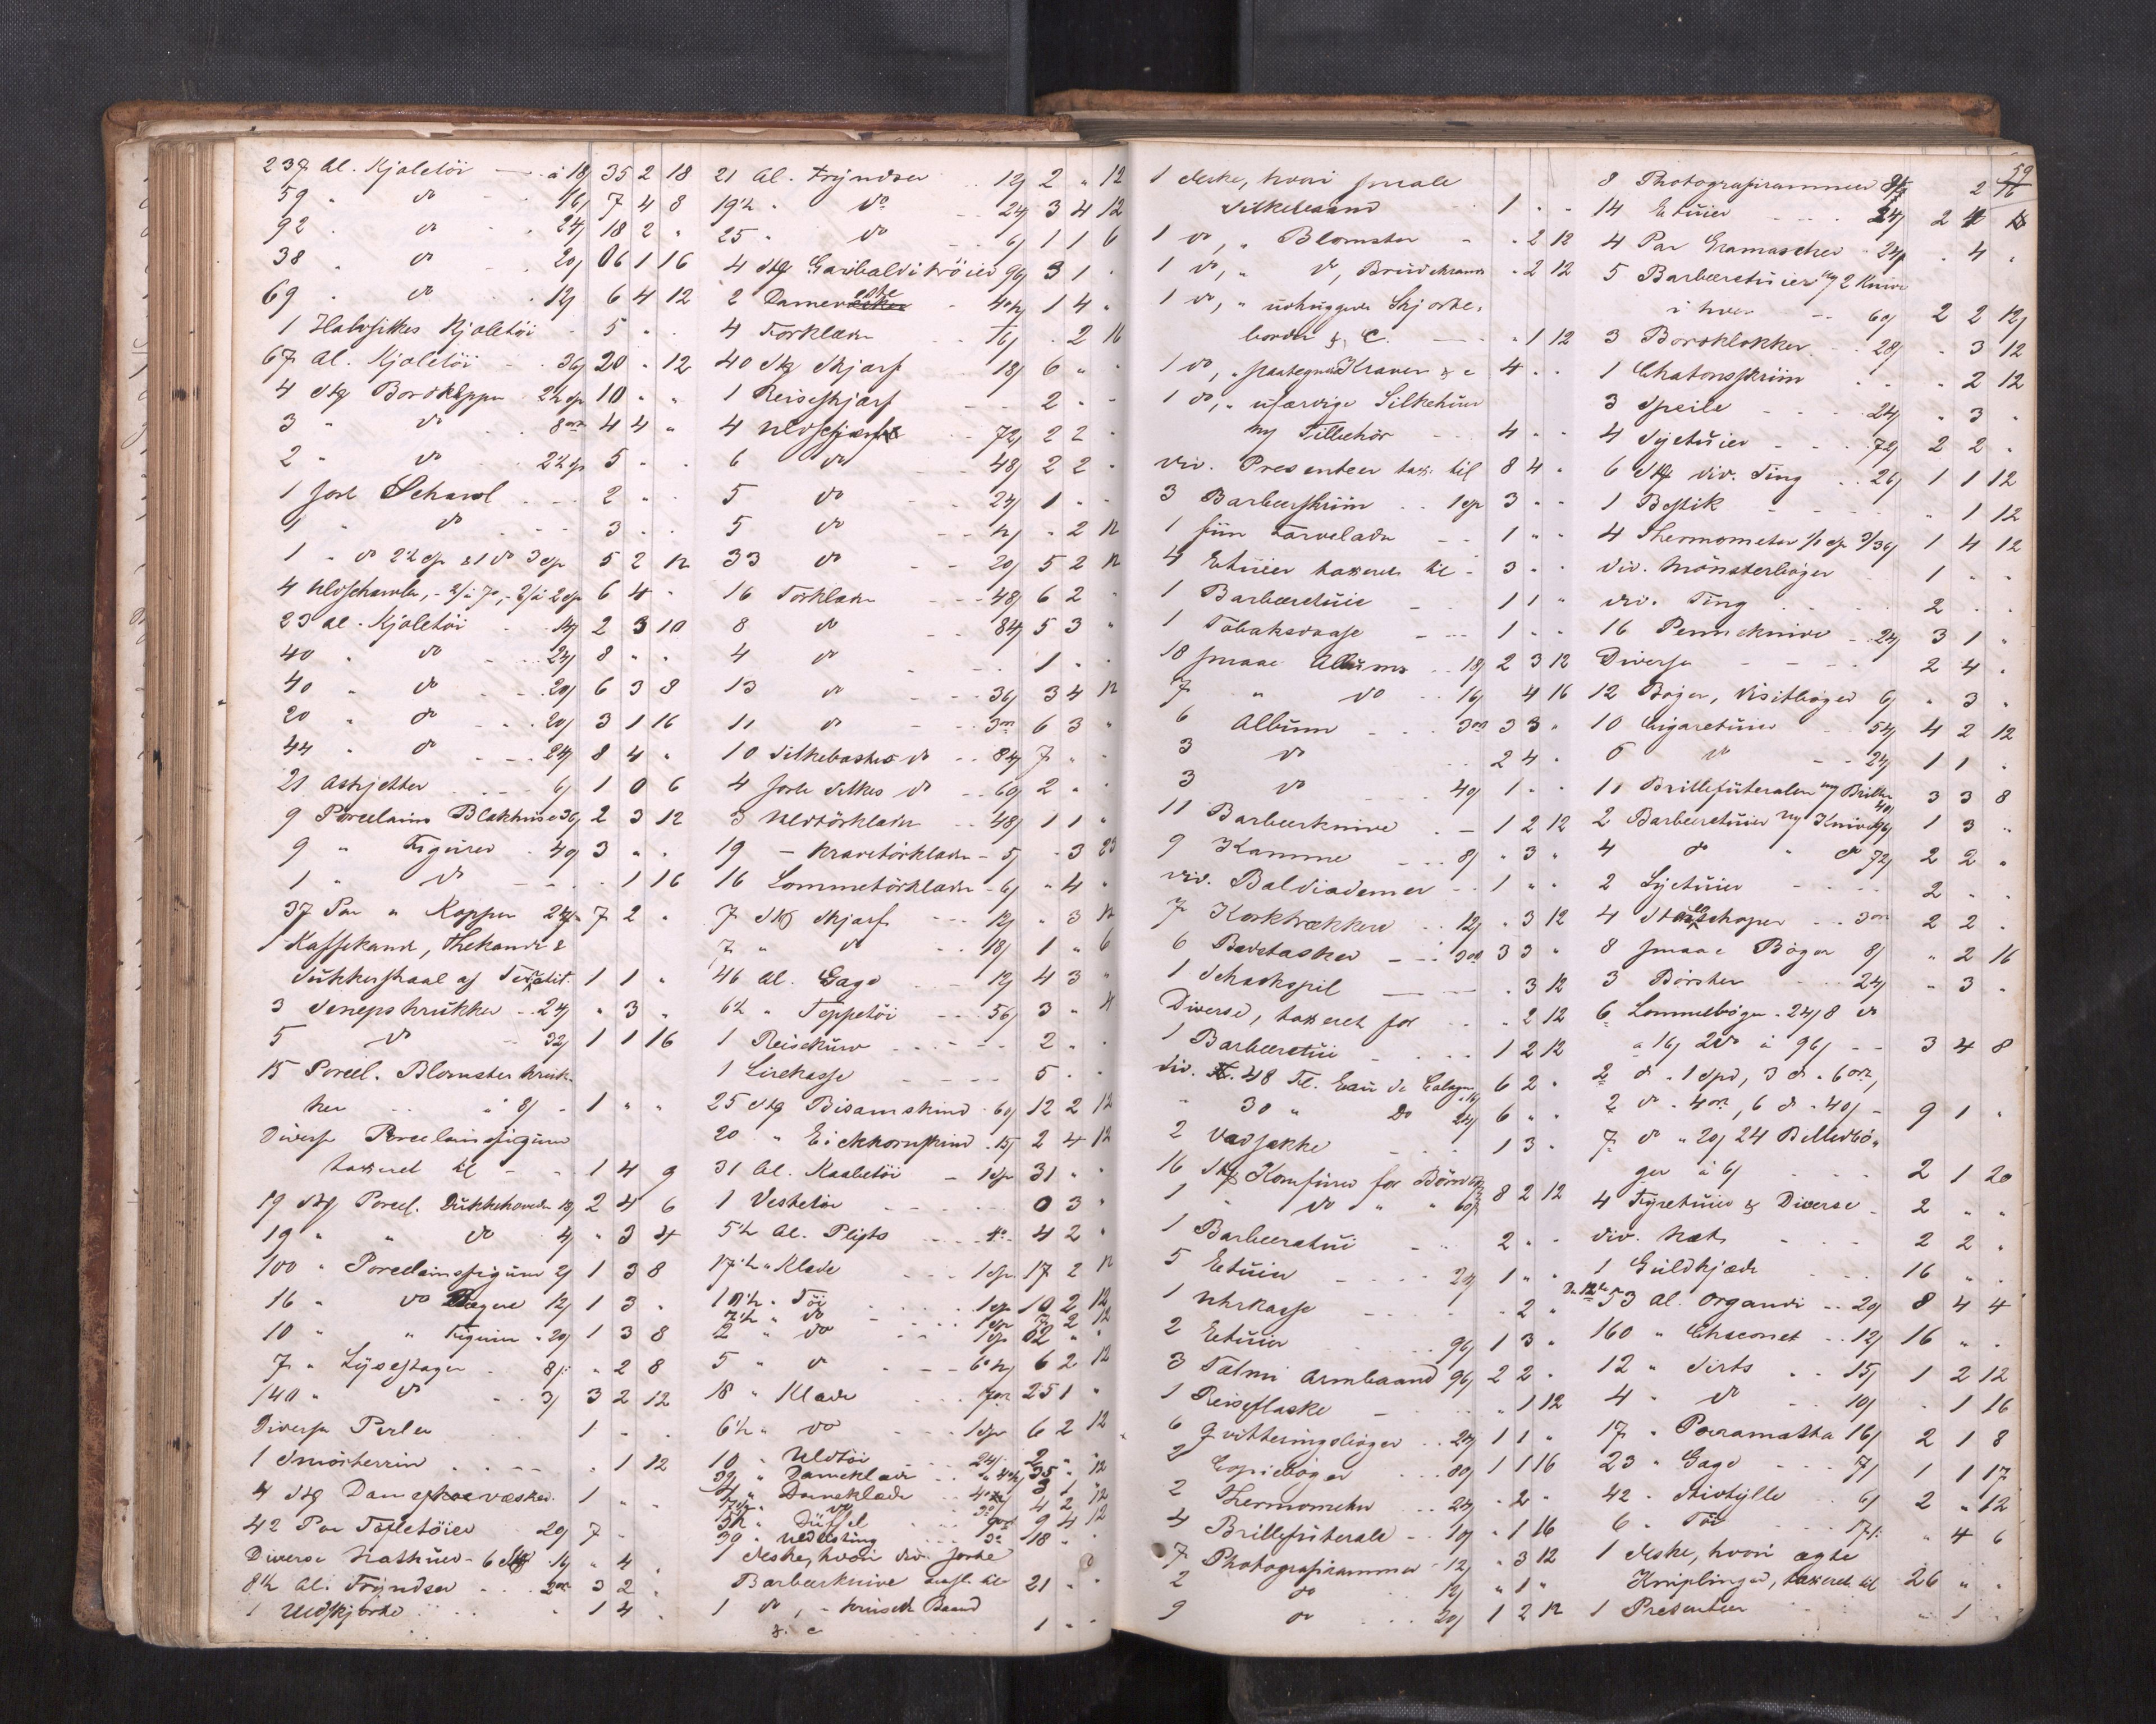 237 Al. Kjoletöi - à 18/ 35 2 18
59 " do 16/ 7 4 8
92 " do 24/ 18 2 "
38 " do 20/ 06 1 16
69 " do 12/ 6 4 12
1 Halvsilkes Kjoletöi 5 " "
67 Al. Kjoletöi 36/ 20 " 12
4 Stk Bordklæpper 2½ Sp 10 " "
3 " do 8 ort 4 4 "
2 " do 2½ Sp 5 " "
1 sort Schavl 2 " "
1 " do 3 " "
1 " do 2½ Sp & 1 do 3 Sp 5 2 12
4 Uldschavler, 6 4 "
23 Al. Kjoletöi 14/ 2 3 10
40 " do 24/ 8 " "
40 " do 20/ 6 3 8
20 " do 20/ 3 1 16
44 " do 24/ 8 4 "
21 Askjetter 6/ 1 0 6
9 Porcelains Blækhuse 36/ 2 3 12
9 " Figurer 40/ 3 " "
1 " do " 1 16
37 Par " Kopper 24/ 7 2 "
1 Kaffekande, Thekande &
Sukkerskaal af 1 1 "
3 Senepskrukker 24/ " 3 "
5 do 32/ 1 1 16
15 Porcel. Blomsterkruk-
ker à 8/ 1 " "
Diverse Porcelainsfigurer
taxeret til 1 4 9
19 Stk Porcel. Dukkehoveder 18/ 2 4 6
19 " " do 4/ " 3 4
100 " Porcelainsfigurer 2/ 1 3 8
16 " do Bægere 12/ 1 3 "
10 " " Figurer 20/ 1 3 8
7 " Lysestager 8/ " 2 8
140 " do 3/ 3 2 12
Diverse Perler 1 " "
1 Smörterrin " 1 12
4 Stk Damevæsker 1 " "
42 Par Töfletöier 20/ 7 " "
Diverse Nathuer - 6 Stk 16/ " 4 "
8½ Al. Fryndser 2 ort 3 2 "
1 Uldskjorte " 1 4 "
21 Al. Fryndser 12/ 2 " 12
19½ " do 24/ 3 4 12
25 " do 6/ 1 1 6
4 Stk Garibalditröier 96/ 3 1 "
2 Damer 1 4 "
4 Forklæder 16/ " 2 16
40 Stk Skjærf 18/ 6 " "
1 Reiseskjærf 2 " "
4 Uldskjærf 72/ 2 2 "
6 do 48/ 2 2 "
5 do 24/ 1 " "
5 do 12/ " 2 12
33 do 20/ 5 2 12
16 Törklæder 48/ 6 2 "
8 do 84/ 5 3 "
4 do 1 " "
13 do 36/ 3 4 12
11 do 3 ort 6 3 "
10 Silkebastes do 84/ 7 " "
4 sorte Silkes do 60/ 2 " "
3 Uldtörklæder 48/ 1 1 "
19 - Kravetörklæder 5/ " 3 23
16 Lommetörklæder 6/ " 4 "
7 Stk Skjærf 12/ " 3 12
7 " do 18/ 1 " 6
46 Al. Gage 12/ 4 3 "
6½ " Teppetöi 56/ 3 " 4
1 Reisekurv 2 " "
1 Lirekasse 5 " "
25 Stk Bisamskind 60/ 12 2 12
20 " Eickhornskind 15/ 2 4 12
31 Al. Kaabetöi 1 Sp 31 " "
1 Vestetöi 0 3 "
5½ Al. Pligts 4 2 "
17½ " Klæde 1 Sp 17 2 12
10½ " Töi 1 Sp 10 2 12
7½ " do 1 Sp 7 2 12
2 " do 1 Sp 02 " "
5 " do 6 2 12
18 " Klæde 7 ort 25 1 "
6½ " do 1 Sp 6 2 12
10 " Uldtöi 24/ 2 " "
39 " Dameklæde 35 " 12
4 " Dameklæde 3 1 "
do 4 2 12
" Düffel 9 4 12
30 " Uldlasting 3 ort 18 " "
1 Æske, hvori div. sorte
Barbeerknive taxt. til 21 " "
1 do, - krusede Baand
& c 1 " "
59
1 Æske, hvori smale
Silkebaand 1 " "
1 do, " Blomster " 2 12
1 do, " do, Brudekrands " 2 12
1 do, " udhuggede Skjorte-
border & C. " 1 12
1 do, " paategnede Kraver & c 4 " "
1 do, " ufærdige Silkehuer
og Tilbehör 4 " "
div. Presenteer tax. til 8 4 "
3 Barbeerskriin 1 Sp 3 " "
1 fiin Farvelade 1 " "
4 Etuier taxeret til 3 " "
1 Barbeeretuie 1 1 "
1 Tobaksdaase 1 " "
18 smaae Albums 18/ 2 3 12
7 " do 16/ 4 16
6 Album 3 ort 3 3 "
3 do 2 4 "
3 do 40/ 1 " "
11 Barbeerknive 1 2 12
9 Kamme 8/ " 3 "
div. Baldiademer 1 " "
7 Korktrækkere 12/ " 3 12
6 Bæretasker 3 ort 3 3 "
1 Schackspil " 3 12
Diverse, taxeret for " 2 12
1 Barbeeretui 1 2 12
div. 48 Fl. Eau de Cologne 6 2 "
" 30 " Do 24/ 6 " "
2 Vadsække 1 3 "
16 Stk Komfurer for Börn 8 2 12
1 " do " " 60/
1 Barbeeretui 2 " "
5 Etuier 24/ 1 " "
1 Uhrkasse " 2 "
2 Etuier 96/ 1 3 "
3 Talmi Armbaand 96/ 2 2 "
1 Reiseflaske " 1 12
6 Qvitteringsböger 24/ 1 1 "
2 Copieböger 80/ 1 1 16
2 Thermometer 24/ " 2 "
4 Brillefuterale 10/ " 1 16
7 Photografirammer 12/ " 3 12
2 do 12/ " 1 "
9 do 20/ 1 2 12
8 Photografirammer 2 16
14 Etuier 24/ 2 4
4 Par Gramascher 24/ " 4 "
5 Barbeeretuier og 2 Knive
i hver 60/ 2 2 12
3 Bordklokker 28/ " 3 12
1 Chatonsskriin " 2 12
3 Speile 24/ " 3 "
4 Syetuier 72/ 2 2 "
6 Stk div. Ting 26/ 1 1 12
1 Bestik " 1 12
4 Thermometer 1 4 12
div. Mönsterböger 1 " "
div. Ting 2 " "
16 Penneknive 24/ 3 1 "
Diverse 2 4 "
12 Böger, Visitböger 6/ " 3 "
10 Cigaretuier 54/ 4 2 12
6 do 24/ 1 1 "
11 Brillefuteraler og Briller 40/ 3 3 8
2 Barbeeretuier og Knive 96/ 1 3 "
4 do " do 72/ 2 2 "
2 Syetuier 2 " "
4 3 ort 2 2 "
8 smaae Böger 8/ " 2 16
3 Börster 24/ " 3 "
6 Lommeböger 24/ 8 do
à 16/ 2 do à 96/ 3 4 8
2 do " 1 Spd, 3 do " 6 ort,
2 do " 4 ort, 6 do " 40/ 9 1 "
7 do " 20/ 24 Billedbö-
ger à 6/ 2 1 20
4 Fyretuier & Diverse 2 " "
div. Hat 2 2 "
1 Guldkjæde 16 " "
53 Al. Organdi 20/ 8 4 4
160 " Chaconet 12/ 16 " "
12 " Sirts 15/ 1 2 12
4 " do 10/ " 1 16
17 " Parramatta 16/ 2 1 8
23 " Gage 7/ 1 1 17
42 " Stivtylle 6/ 2 " 12
6 " Töi 17/ " 4 6
1 Æske, hvori ægte
Kniplinger, taxeret til 26 " "
1 Presenteer " 1 "